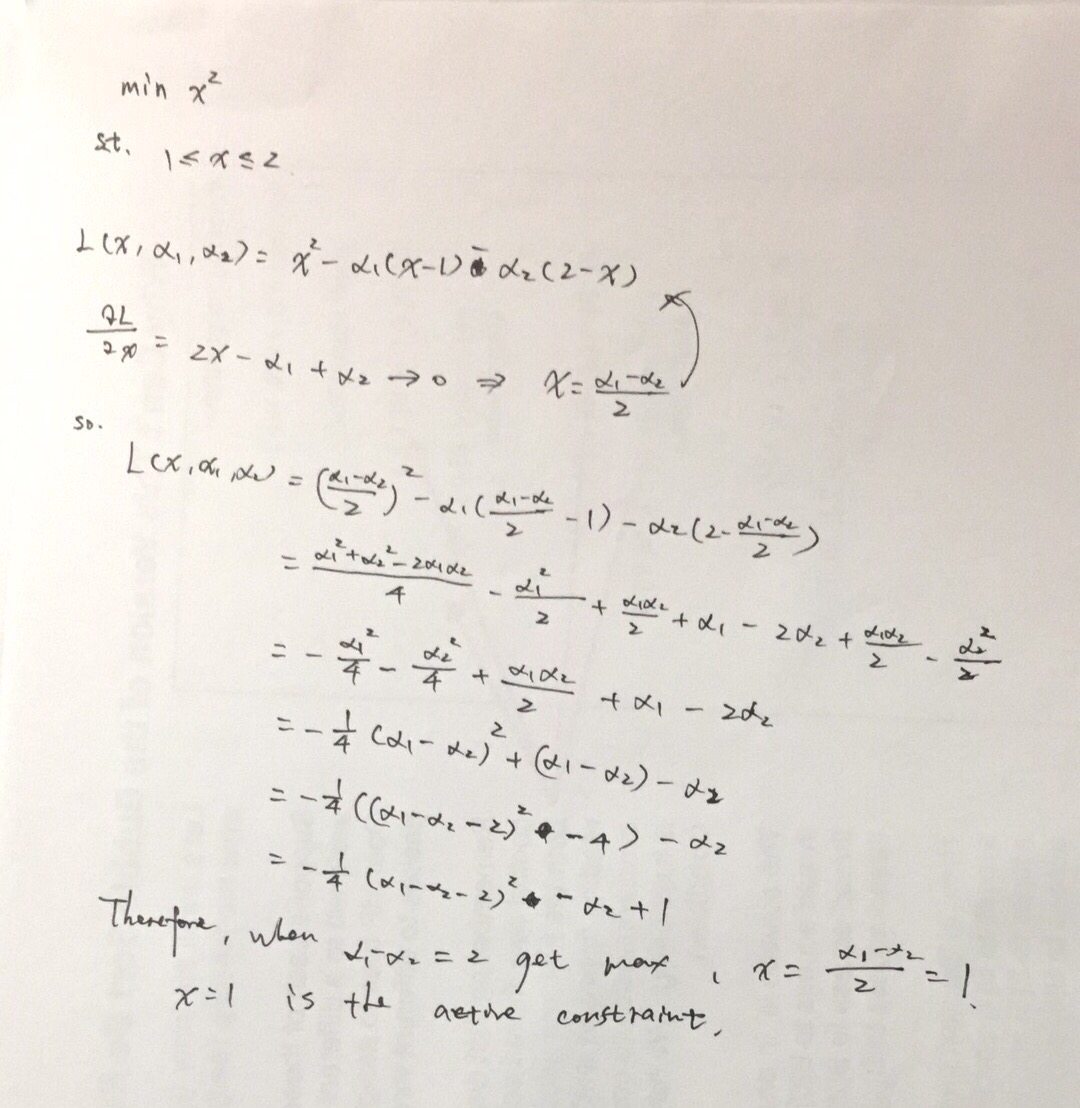 min x²
st. 1 ≤ x ≤ 2
L(x, α₁, α₂) = x² - α₁(x-1) - α₂(2-x)
∂L/∂x = 2x - α₁ + α₂ → 0 ⇒ x = (α₁-α₂)/2
so.
L(x, α₁, α₂) = ((α₁-α₂)/2)² - α₁((α₁-α₂)/2 - 1) - α₂(2 - (α₁-α₂)/2)
= (α₁² + α₂² - 2α₁α₂)/4 - α₁²/2 + α₁α₂/2 + α₁ - 2α₂ + α₁α₂/2 - α₂²/2
= - α₁²/4 - α₂²/4 + α₁α₂/2 + α₁ - 2α₂
= - 1/4 (α₁ - α₂)² + (α₁ - α₂) - α₂
= - 1/4 ((α₁-α₂-2)² - 4) - α₂
= - 1/4 (α₁-α₂-2)² - α₂ + 1
Therefore, when α₁-α₂ = 2 get max, x = (α₁-α₂)/2 = 1.
x=1 is the active constraint.